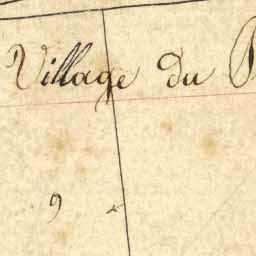 Village du
9